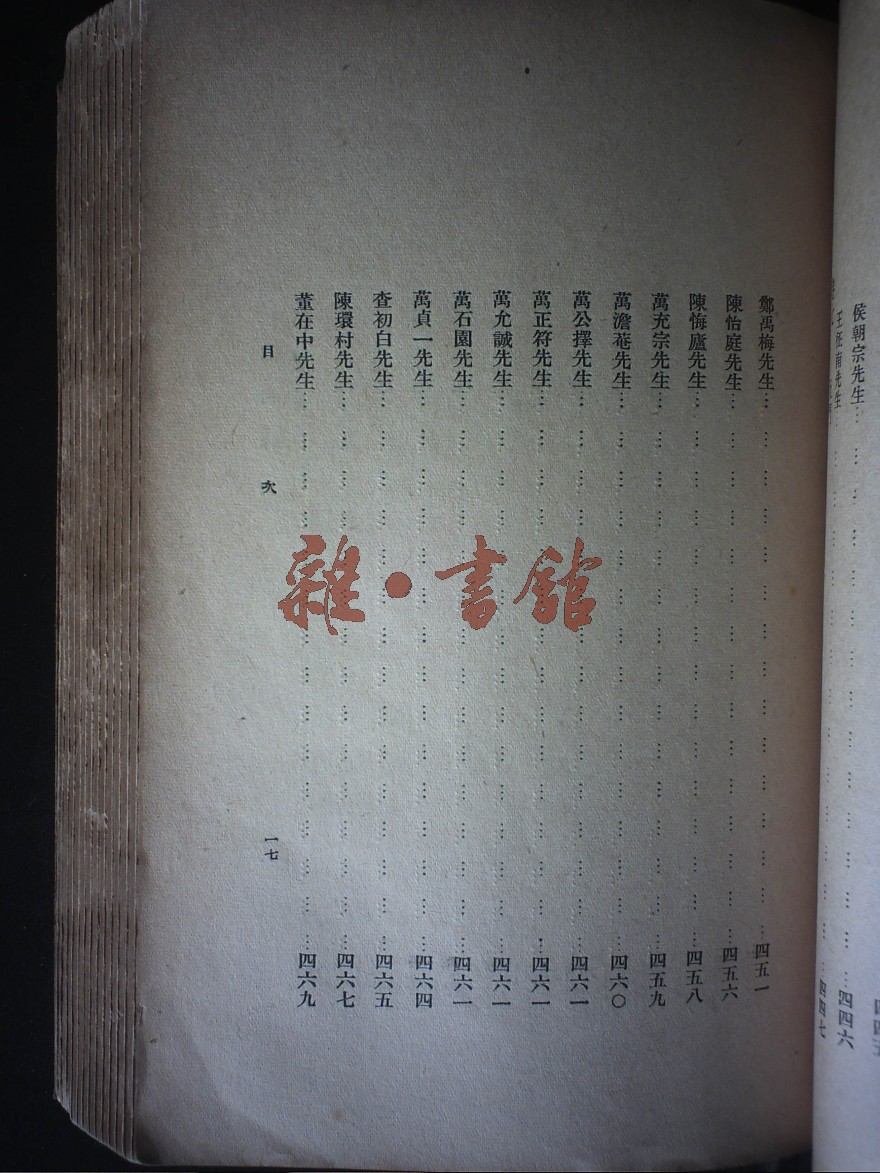 侯朝宗先生…………………………四四六
四四七
鄭禹梅先生…………………………四五一
陳怡庭先生…………………………四五六
陳悔廬先生…………………………四五八
萬充宗先生…………………………四五九
萬澹菴先生…………………………四六〇
萬公擇先生…………………………四六一
萬正符先生…………………………四六一
萬允誠先生…………………………四六一
萬石園先生…………………………四六一
萬貞一先生…………………………四六四
查初白先生…………………………四六五
陳環村先生…………………………四六七
董在中先生…………………………四六九
目次 一七
雜·書館